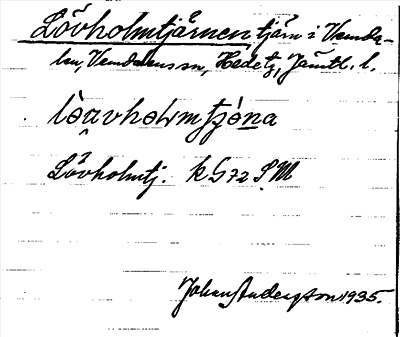 Lövholmtjärnen tjärn i Vemda-
len, Vemdalens sn, Hedetz, Jämtl. l.
lòavholmtjɷna
Lövholmtj. k G72 S.M
Johan Anderszon 1935.